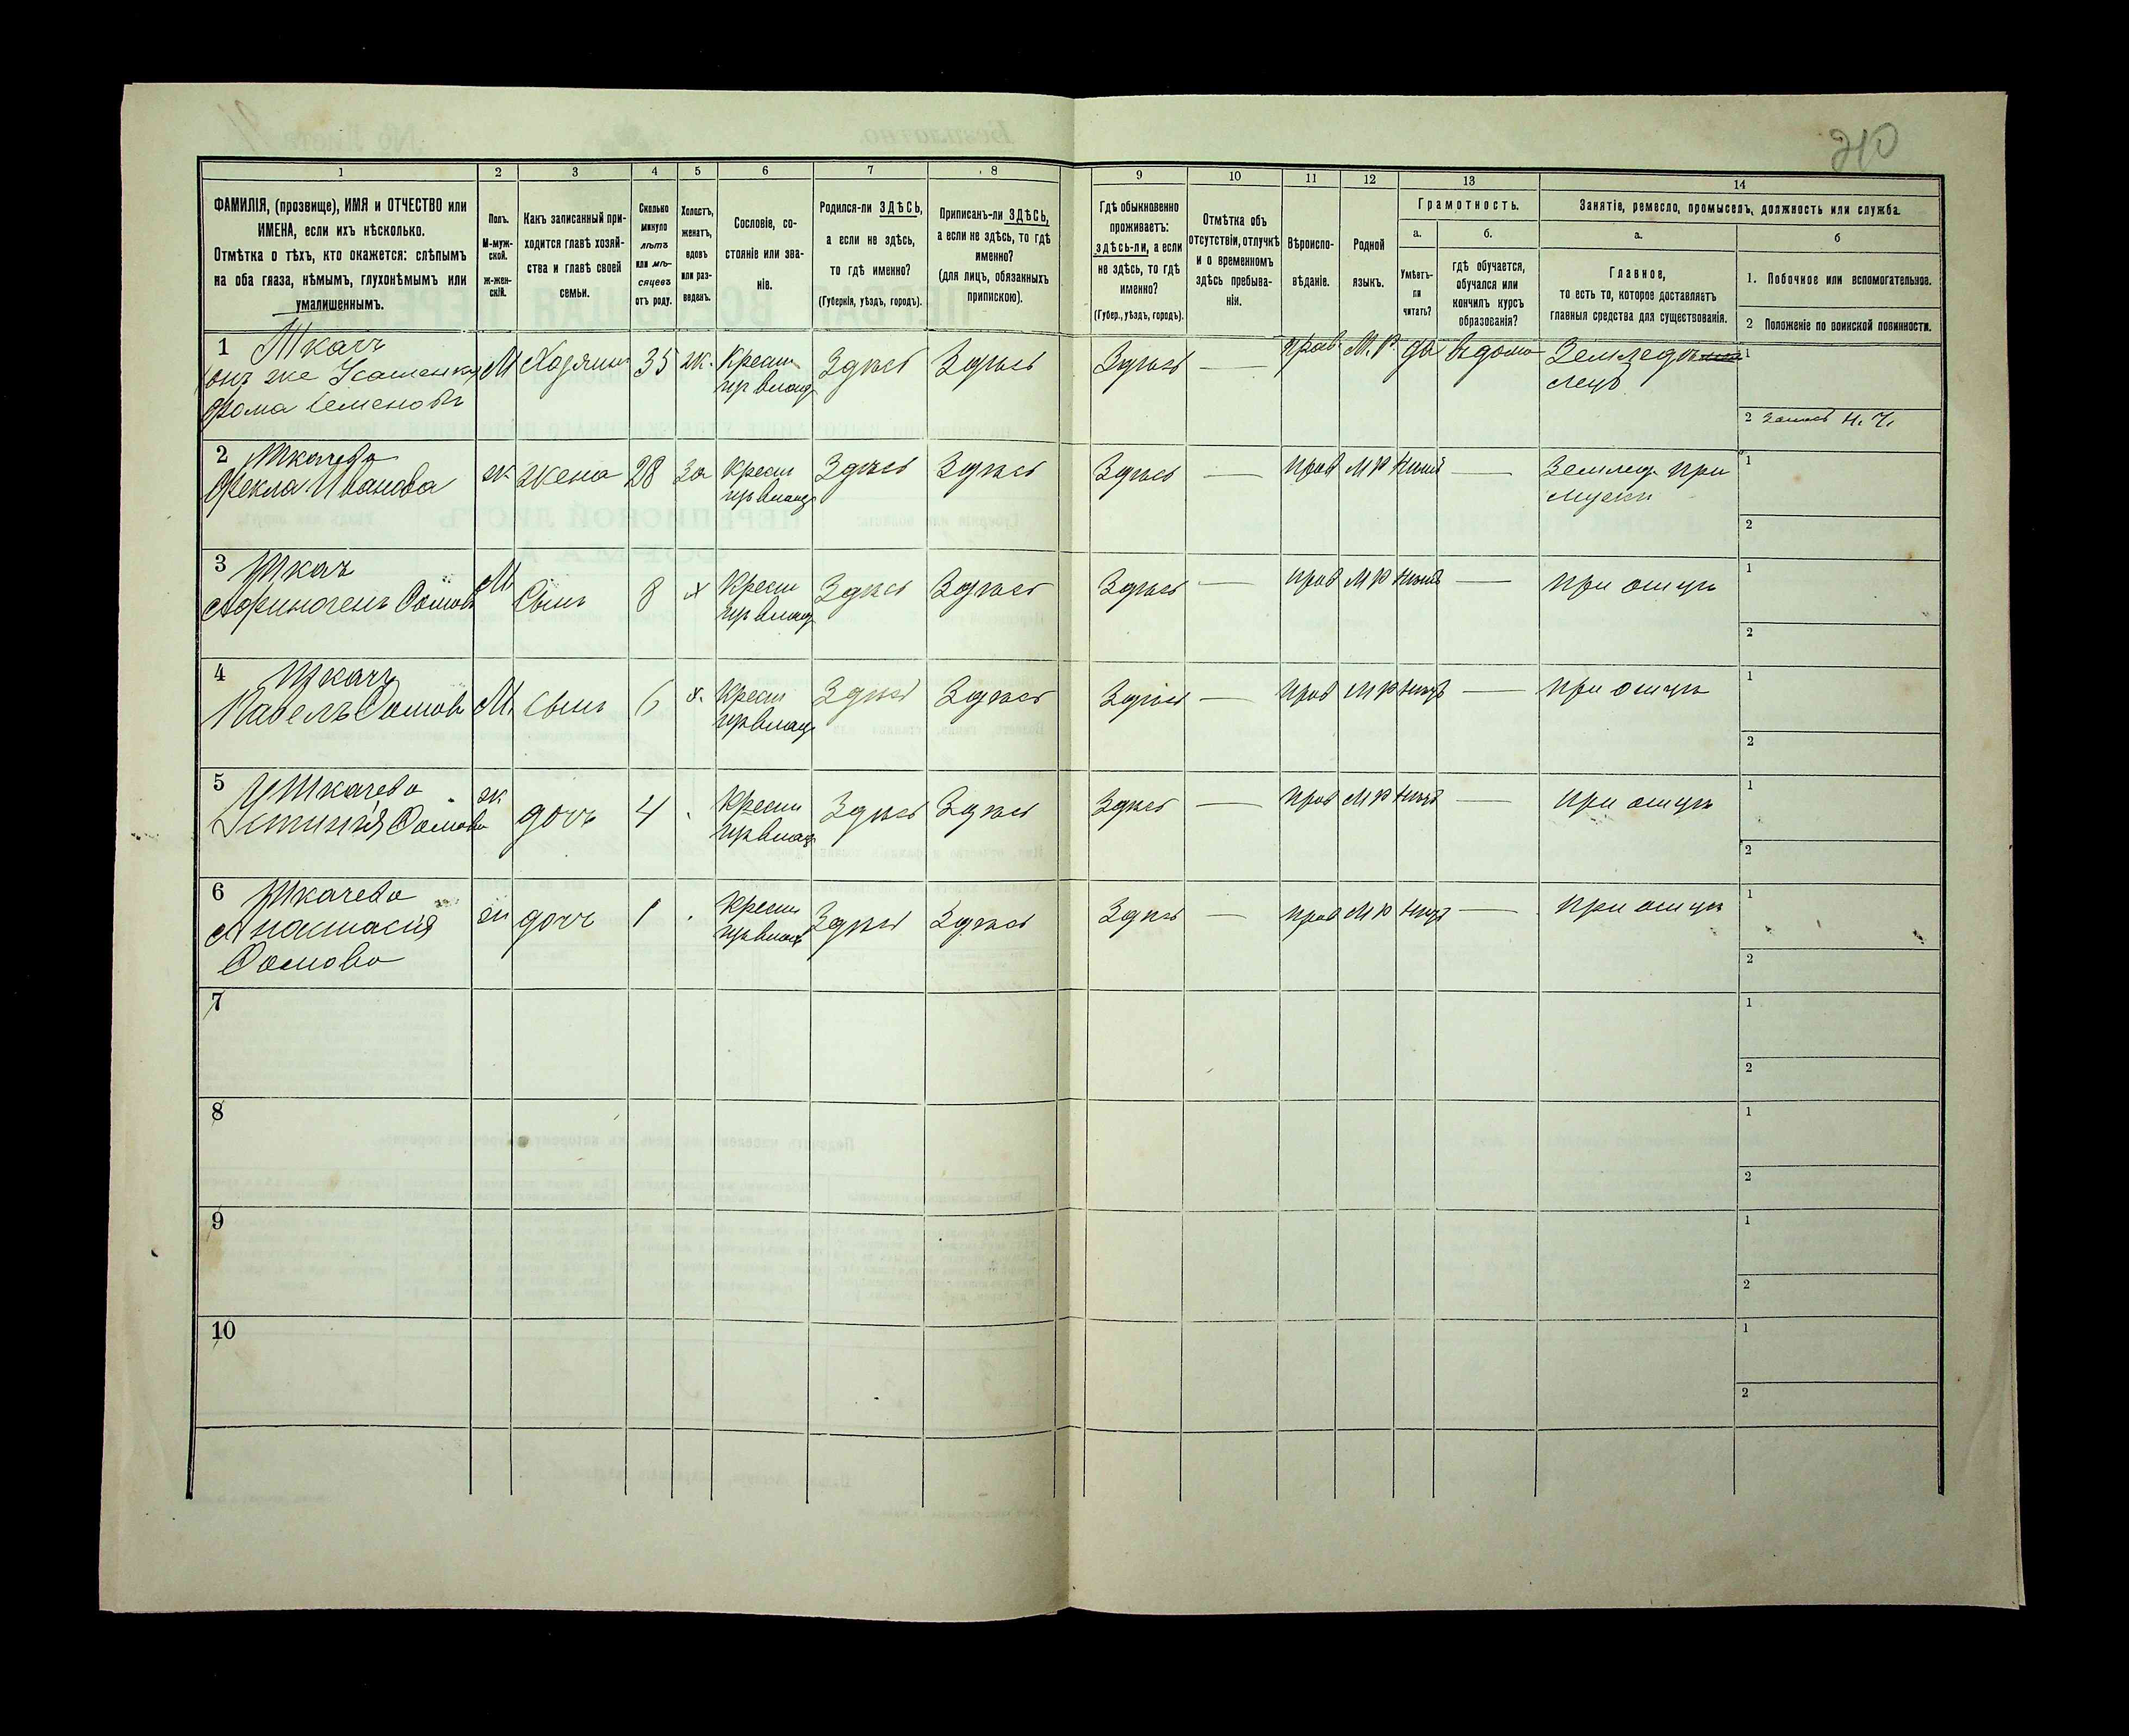 210
1 2 3 4 5 6 7 8 9 10 11 12 13 14
ФАМИЛІЯ, (прозвище), ИМЯ и ОТЧЕСТВО или
ИМЕНА, если ихъ нѣсколько.
Отмѣтка о тѣхъ, кто окажется: слѣпымъ
на оба глаза, нѣмымъ, глухонѣмымъ или
умалишеннымъ.
Полъ.
М-муж-
ской.
ж-жен-
скій.
Какъ записанный при-
ходится главѣ хозяй-
ства и главѣ своей
семьи.
Сколько
минуло
лѣтъ
или мѣ-
сяцевъ
отъ роду.
Холостъ,
женатъ,
вдовъ
или раз-
веденъ.
Сословіе, со-
стояніе или зва-
ніе.
Родился-ли ЗДѢСЬ,
а если не здѣсь,
то гдѣ именно?
(Губернія, уѣздъ, городъ).
Приписанъ-ли ЗДѢСЬ,
а если не здѣсь, то гдѣ
именно?
(для лицъ, обязанныхъ
припискою).
Гдѣ обыкновенно
проживаетъ:
здѣсь-ли, а если
не здѣсь, то гдѣ
именно?
(Губер., уѣздъ, городъ).
Отмѣтка объ
отсутствіи, отлучкѣ
и о временномъ
здѣсь пребыва-
ніи.
Вѣроиспо-
вѣданіе.
Родной
языкъ.
Грамотность.
а.
Умѣетъ-
ли
читать?
б.
гдѣ обучается,
обучался или
кончилъ курсъ
образованія?
Занятіе, ремесло, промыселъ, должность или служба.
а.
Главное,
то есть то, которое доставляетъ
главныя средства для существованія.
б
1. Побочное или вспомогательное.
2 Положеніе по воинской повинности.
1 Ткачъ
онъ же Усатенко
Фома Семеновъ
М Хозяинъ 35 ж. Крест
Здѣсь Здѣсь Здѣсь — прав. М. Р да
Земледѣ
лецъ
1
2 Н. Ч.
2 Ткачева
Фекла Иванова
ж жена 28 За Крест
Здѣсь Здѣсь Здѣсь — прав М Р —
Земледѣ при
мужѣ
1
2
3 Ткачъ
Афиногенъ Фомовъ
М Сынъ 8 х Крест
Здѣсь Здѣсь Здѣсь — прав М Р — при отцѣ
1
2
4 Ткачъ
Павелъ Фомовъ
М. Сынъ 6 х. Крест
Здѣсь Здѣсь Здѣсь — прав М Р — при отцѣ
1
2
5 Ткачева
Устинія Фомова
ж дочь 4 . Крест
Здѣсь Здѣсь Здѣсь — прав М Р — при отцѣ
1
2
6 Ткачева
Анастасія
Фомова
ж дочь 1 . Крест
Здѣсь Здѣсь Здѣсь — прав М Р — при отцѣ
1
2
7
1
2
8
1
2
9
1
2
10
1
2